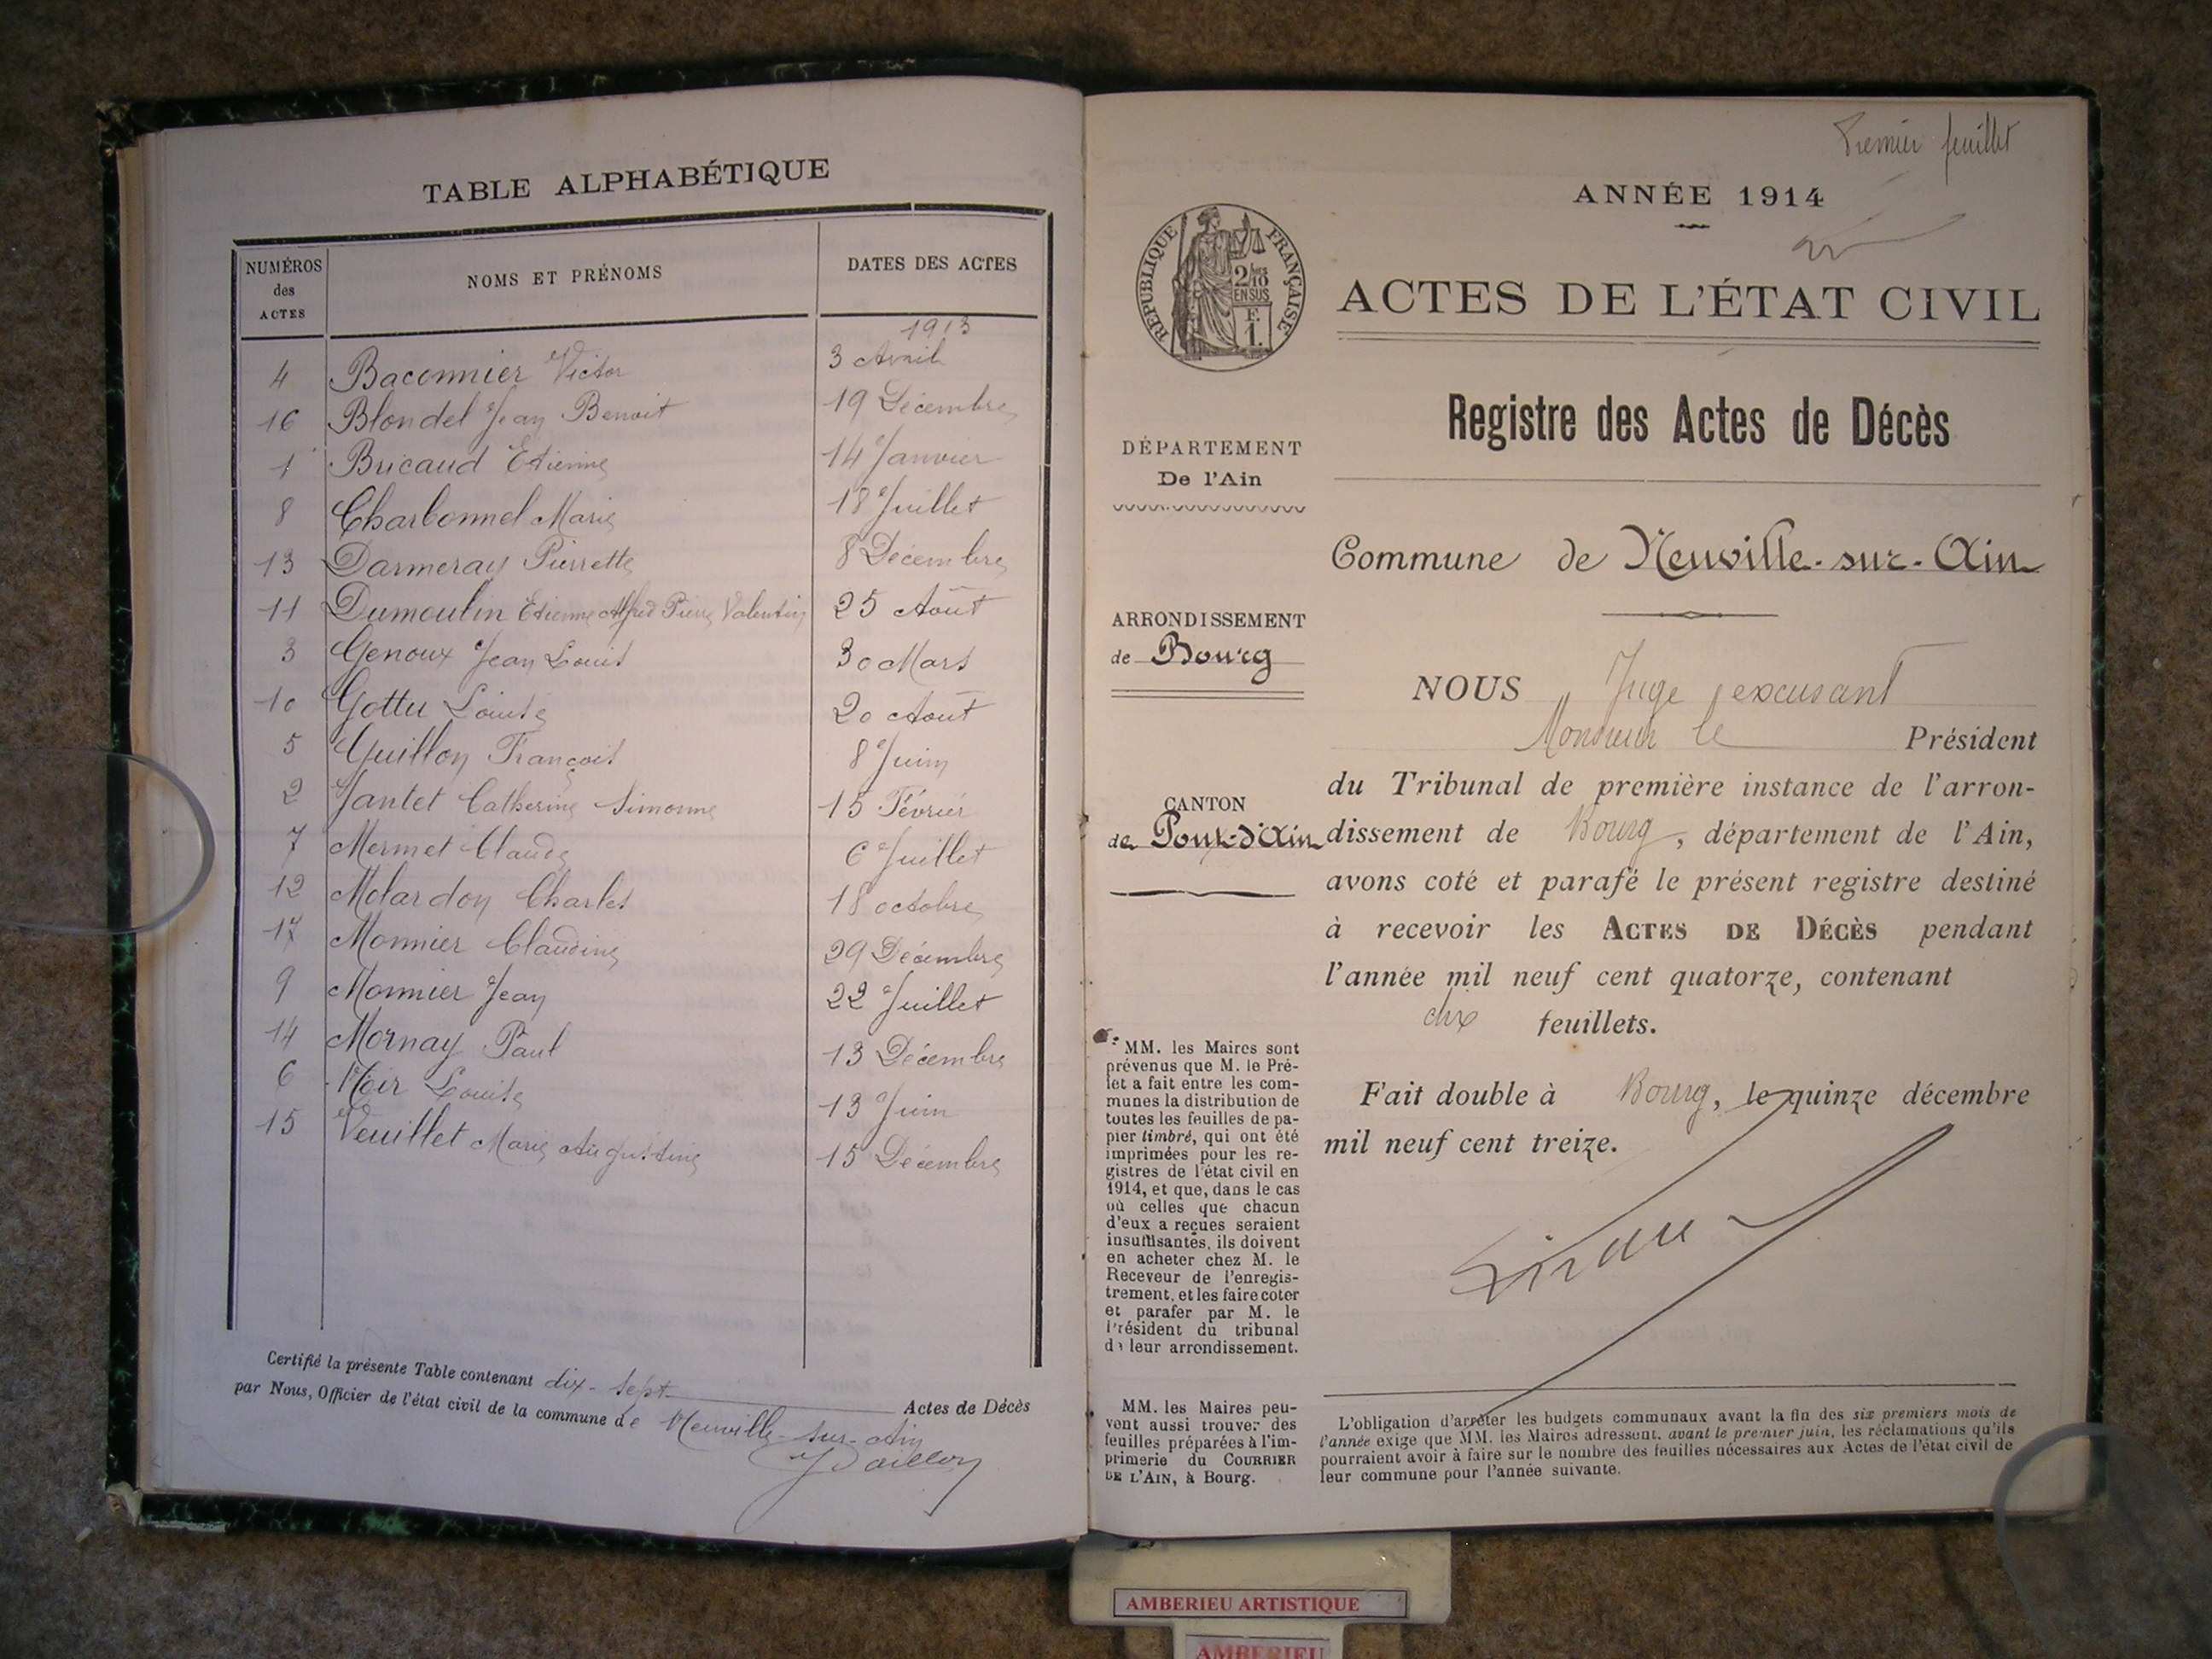 TABLE ALPHABÉTIQUE
NUMÉROS des ACTES NOMS ET PRÉNOMS DATES DES ACTES
1913
4 Baconnier Victor 3 Avril
16 Blondel Jean Benoit 19 Décembre
1 Bricaud Etienne 14 Janvier
8 Charbonnel Marie 18 Juillet
13 Darmeray Pierrette 8 Décembre
11 Dumoulin Etienne Alfred Pierre Valentin 25 Août
3 Genoux Jean Louis 30 Mars
10 Gottu Louise 20 Août
5 Guillon François 8 Juin
2 Jantet Catherine Simonne 15 Février
7 Mermet Claude 6 Juillet
12 Molardon Charles 18 octobre
17 Monnier Claudine 29 Décembre
9 Monnier Jean 22 Juillet
14 Mornay Paul 13 Décembre
6 Noir Louise 13 Juin
15 Veuillet Marie Augustine 15 Décembre
Certifié la présente Table contenant dix-sept Actes de Décès
par Nous, Officier de l'état civil de la commune de Neuville-sur-Ain
Premier feuillet
ANNÉE 1914
RÉPUBLIQUE FRANÇAISE
2/10
EN SUS
F.
1.
ACTES DE L'ÉTAT CIVIL
Registre des Actes de Décès
DÉPARTEMENT
De l'Ain
Commune de Neuville-sur-Ain
ARRONDISSEMENT
de Bourg
NOUS Juge excusant
Monsieur le Président
du Tribunal de première instance de l'arron-
CANTON
de Pont-d'Ain
dissement de Bourg, département de l'Ain,
avons coté et parafé le présent registre destiné
à recevoir les ACTES DE DÉCÈS pendant
l'année mil neuf cent quatorze, contenant
dix feuillets.
Fait double à Bourg, le quinze décembre
mil neuf cent treize.
MM. les Maires sont
prévenus que M. le Pré-
fet a fait entre les com-
munes la distribution de
toutes les feuilles de pa-
pier timbré, qui ont été
imprimées pour les re-
gistres de l'état civil en
1914, et que, dans le cas
où celles que chacun
d'eux a reçues seraient
insuffisantes, ils doivent
en acheter chez M. le
Receveur de l'enregis-
trement, et les faire coter
et parafer par M. le
Président du tribunal
de leur arrondissement.
MM. les Maires peu-
vent aussi trouver des
feuilles préparées à l'im-
primerie du COURRIER
DE L'AIN, à Bourg.
L'obligation d'arrêter les budgets communaux avant la fin des six premiers mois de
l'année exige que MM. les Maires adressent, avant le premier juin, les réclamations qu'ils
pourraient avoir à faire sur le nombre des feuilles nécessaires aux Actes de l'état civil de
leur commune pour l'année suivante.
AMBERIEU ARTISTIQUE
AMBERIEU